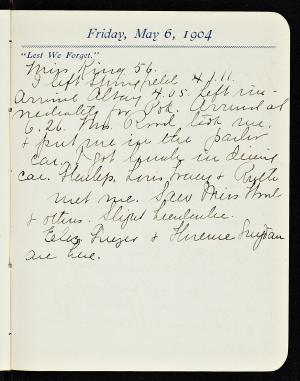 Friday, May 6, 1904
"Lest We Forget."
Miss King 56.
I left Springfield at 1.11.
Arrived Albany 4.05. Left im-
mediately for Pok. Arrived at
6.26. Mrs. took me
& put me in the parlor
car. I got lunch in dining
car. Louis, &
met me. Saw Miss
& others. Slight
& Florence
are here.